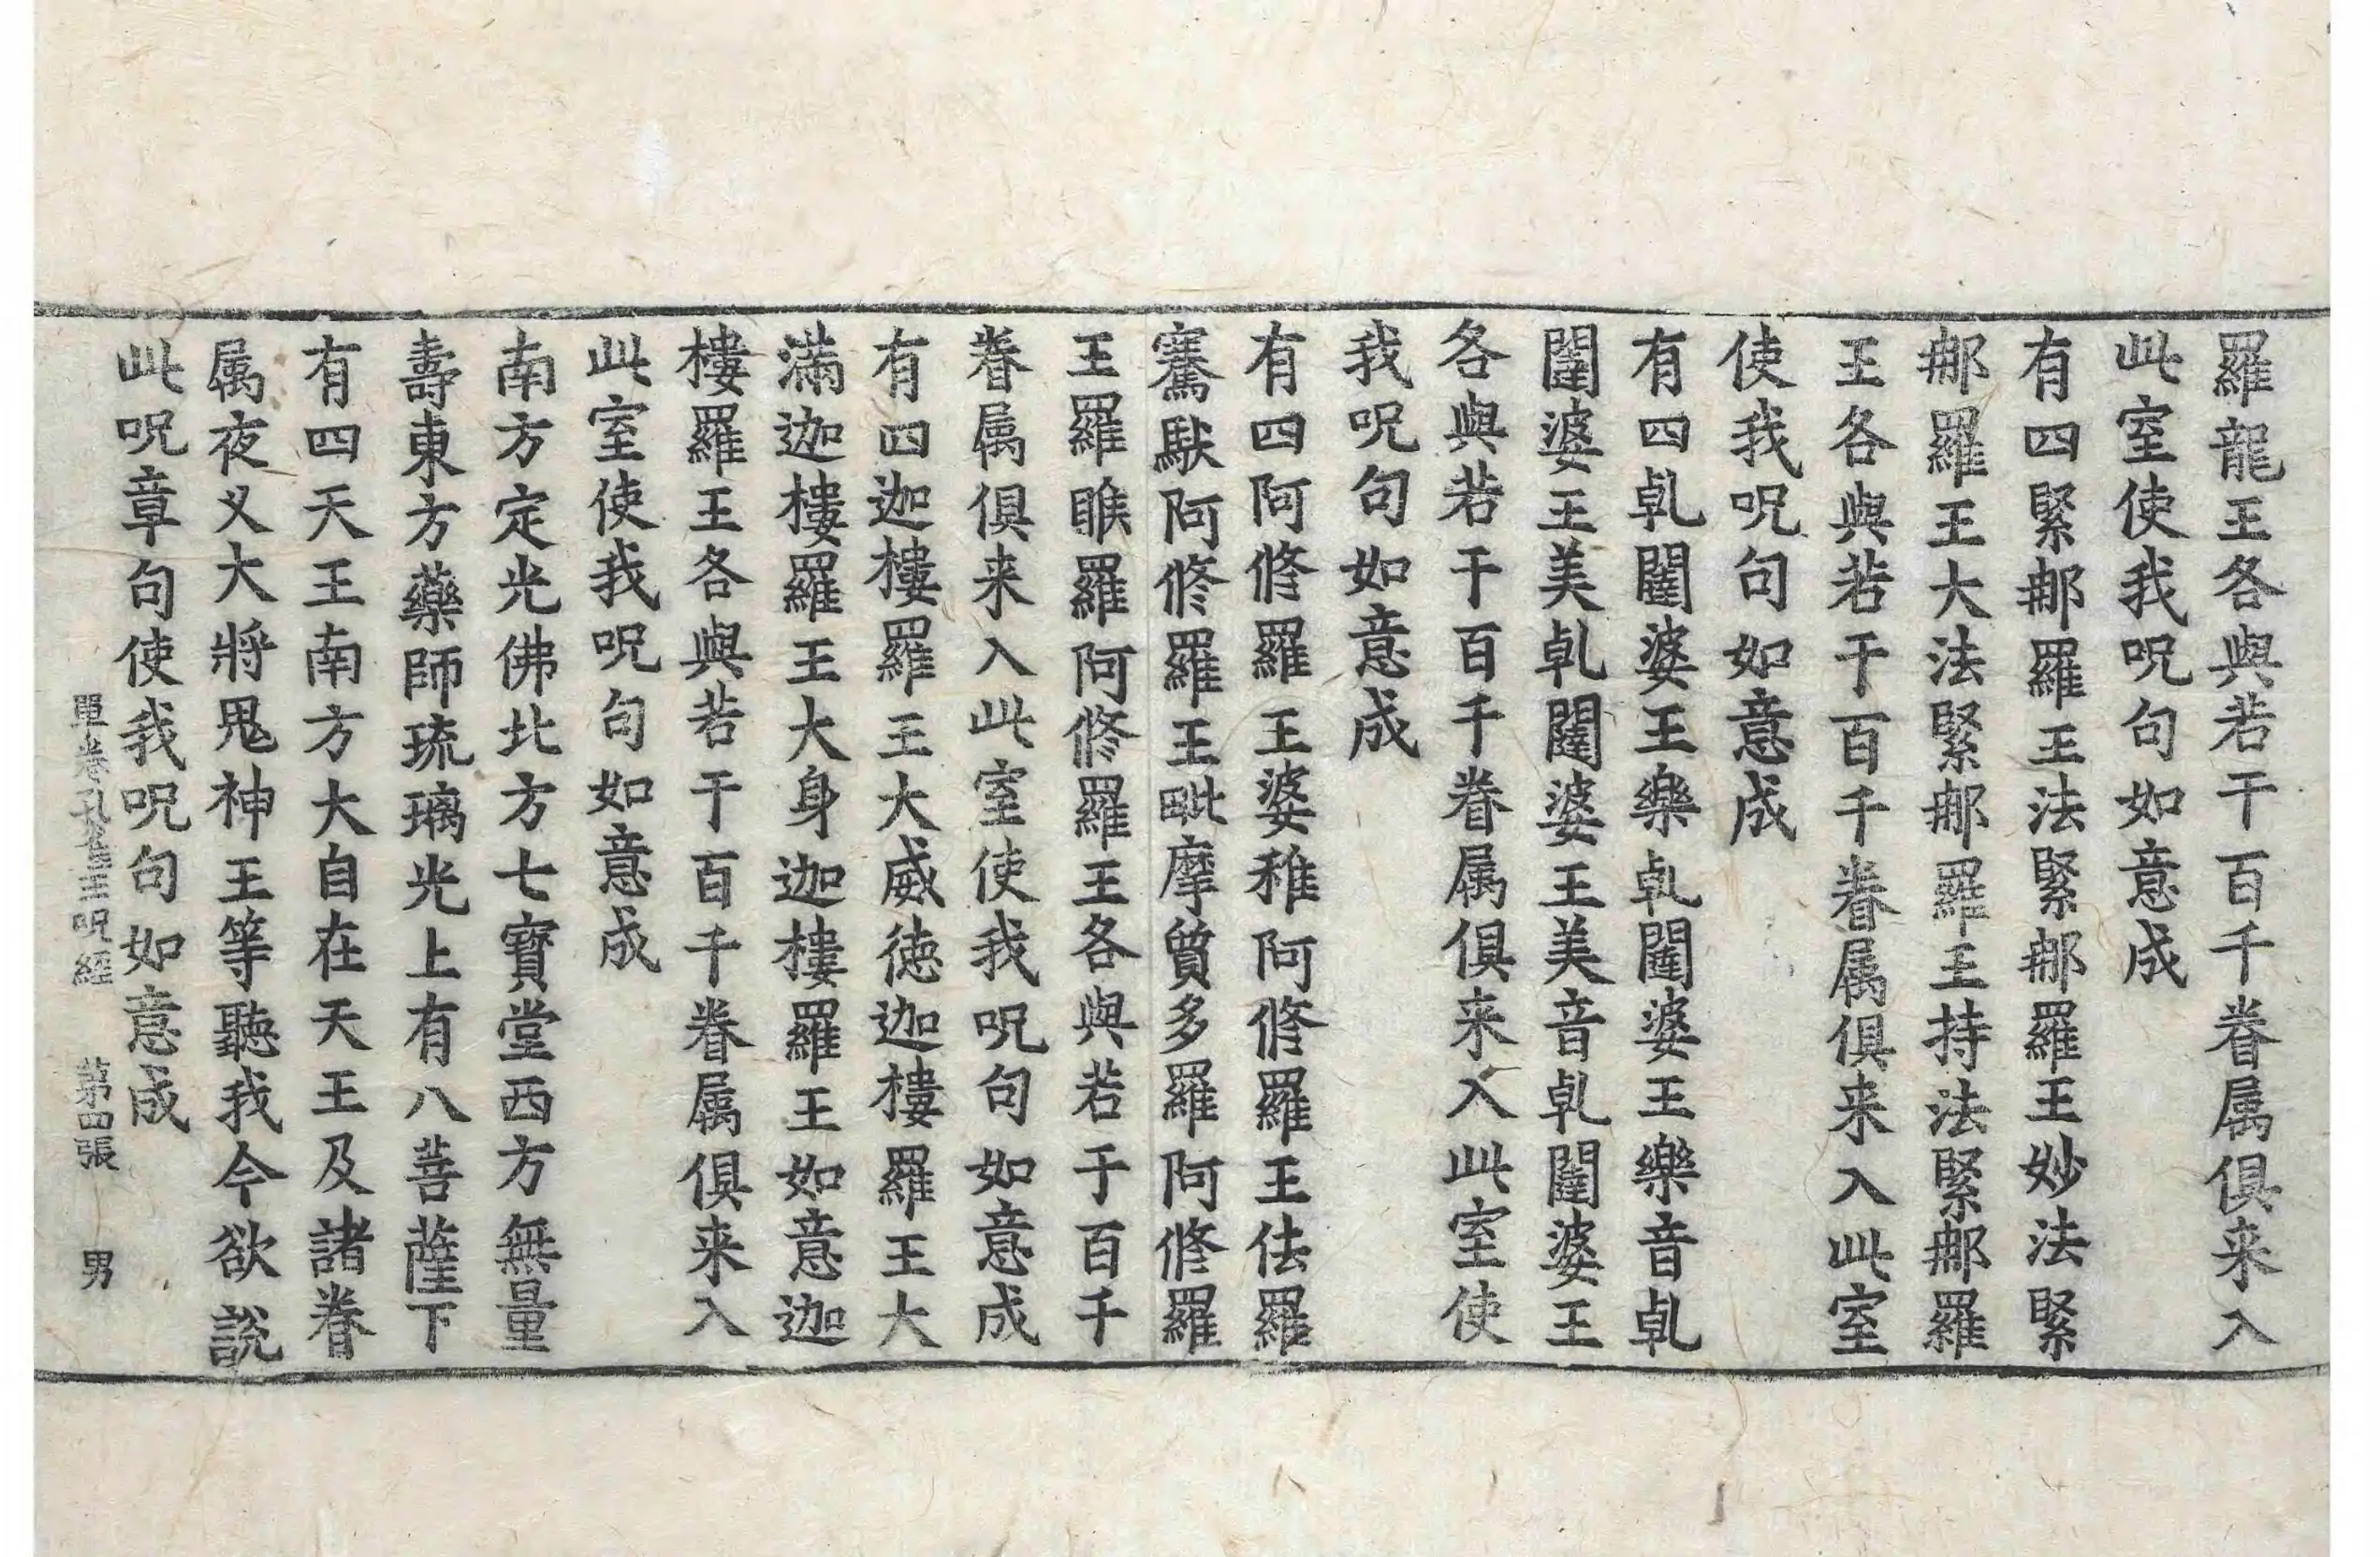 羅龍王各與若干百千眷属俱来入
此室使我呪句如意成
有四緊那羅王法緊那羅王妙法緊
那羅王大法緊那羅王持法緊那羅
王各與若干百千眷属俱来入此室
使我呪句如意成
有四乹闥婆王樂乹闥婆王樂音乹
闥婆王美乹闥婆王美音乹闥婆王
各與若干百千眷属俱来入此室使
我呪句如意成
有四阿修羅王婆稚阿修羅王佉羅
騫馱阿修羅王毗摩質多羅阿修羅
王羅睺羅阿修羅王各與若于百千
眷属俱来入此室使我呪句如意成
有四迦樓羅王大威徳迦樓羅王大
滿迦樓羅王大身迦樓羅王如意迦
樓羅王各與若干百千眷属俱来入
此室使我呪句如意成
南方定光佛北方七寳堂西方無量
壽東方藥師琉璃光上有八菩薩下
有四天王南方大自在天王及諸眷
属夜义大將鬼神王等聽我今欲説
此呪章句使我呪句如意成
單卷孔雀王呪經 苐四張 男